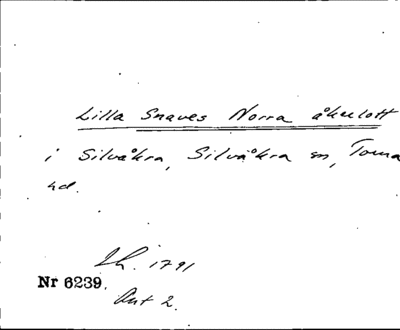 Lilla Snaves Norra åkerlott
i Silvåkra, Silvåkra sn, Torna
hd.
Lh. 1791
Nr 6239.
Akt 2.